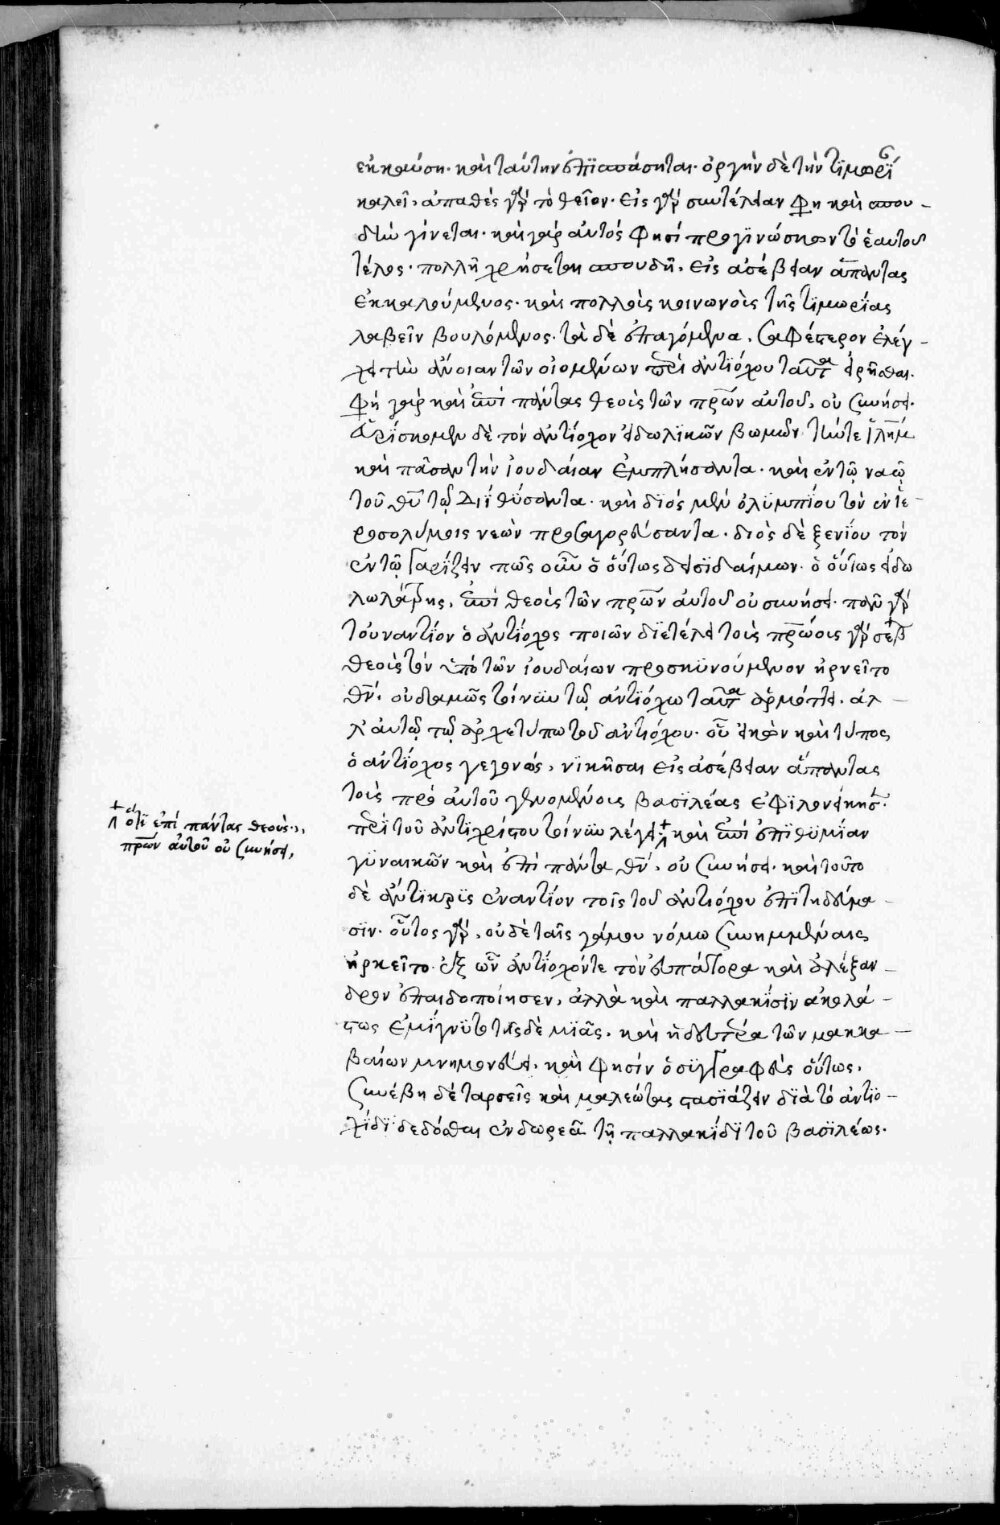 ἐκκαύση· καὶ ταύτην ἐπισπάσηται· ὀργὴν δὲ τὴν τιμωρί
καλεῖ, ἀπαθὲς γὰρ τὸ θεῖον· εἰς γὰρ συντέλειαν φη καὶ σπου-
δὴ γίνεται· καὶ γὰρ αὐτός φησὶ προγινώσκων τὸ ἑαυτοῦ
τέλος· πολλῆ χρήσεται σπουδῆ, εἰς ἀσέβειαν ἅπαντας
ἐκκαλούμενος· καὶ πολλοὺς κοινωνοὺς τῆς τιμωρίας
λαβεῖν βουλόμενος· τὰ δὲ ἐπαγόμενα, σαφέστερον ἐλέγ-
χει τὴν ἄνοιαν τῶν οἰομένων περὶ ἀντιόχου ταῦτα εἰρῆσθαι·
φη γὰρ καὶ ἐπὶ πάντας θεοὺς τῶν πρων αὐτοῦ, οὐ συνήσει·
εὑρίσκομεν δὲ τὸν ἀντίοχον εἰδωλικῶν βωμῶν τήν τε ιλημ
καὶ πᾶσαν τὴν ἰουδαίαν ἐμπλήσαντα· καὶ ἐν τῷ ναῷ
τοῦ θυ τῷ Διῒ θύσαντα· καὶ διὸς μὲν ὀλυμπίου τὸν ἐν ἱε-
ροσολύμοις νεὼν προσαγορεύσαντα· διὸς δὲ ξενίου τὸν
ἐν τῷ Γαριζείν πῶς οὖν ὁ οὕτως δεισιδαίμων· ὁ οὕτως εἰδω
λολάτρης, ἐπὶ θεοὺς τῶν πρων αὐτοῦ οὐ συνήσει· πᾶν γὰρ
τοὐναντίον ὁ ἀντίοχος ποιῶν διετέλει τοὺς πρώους γὰρ σέβ
θεοὺς τὸν ὑπὸ τῶν ἰουδαίων προσκυνούμενον ἠρνεῖτο
θν· οὐδαμῶς τοίνυν τῷ ἀντιόχω ταῦτα ἁρμόττει· ἀλ-
λ' αὐτῷ τῷ ἀρχετύπω τοῦ ἀντιόχου· οὗ εἰκὼν καὶ τύπος
ὁ ἀντίοχος γεγονώς, νικῆσαι εἰς ἀσέβειαν ἅπαντας
τοὺς πρὸ αὐτοῦ γενομένους βασιλέας ἐφιλονείκησ·
περὶ τοῦ ἀντιχρίστου τοίνυν λέγει καὶ ἐπὶ ἐπιθυμίαν
γυναικῶν καὶ ἐπὶ πάντα θν, οὐ συνήσει· καὶ τοῦτο
δὲ ἄντικρυς ἐναντίον τοῖς τοῦ ἀντιόχου ἐπιτηδεύμα-
σιν· οὗτος γὰρ, οὐδὲ ταῖς γάμου νόμω συνημμέναις
ἠρκεῖτο ἐξ ὧν ἀντίοχόν τε τὸν εὐπάτορα καὶ ἀλέξαν-
δρον ἐπαιδοποίησεν, ἀλλὰ καὶ παλλακίσιν ἀκολά-
στως ἐμίγνυτο τῆς δὲ μιᾶς, καὶ ἡ δευτέρα τῶν μακκα-
βαίων μνημονεύει, καὶ φησὶν ὁ συγγραφεὺς οὕτως,
συνέβη δὲ ταρσεῖς καὶ μαλεώτας στασιάζειν διὰ τὸ ἀντιο-
χίδι δεδόσθαι ἐν δωρεᾷ τῇ παλλακίδι τοῦ βασιλέως·
ὅτι ἐπὶ πάντας θεοὺς
πρων αὐτοῦ οὐ συνήσει,